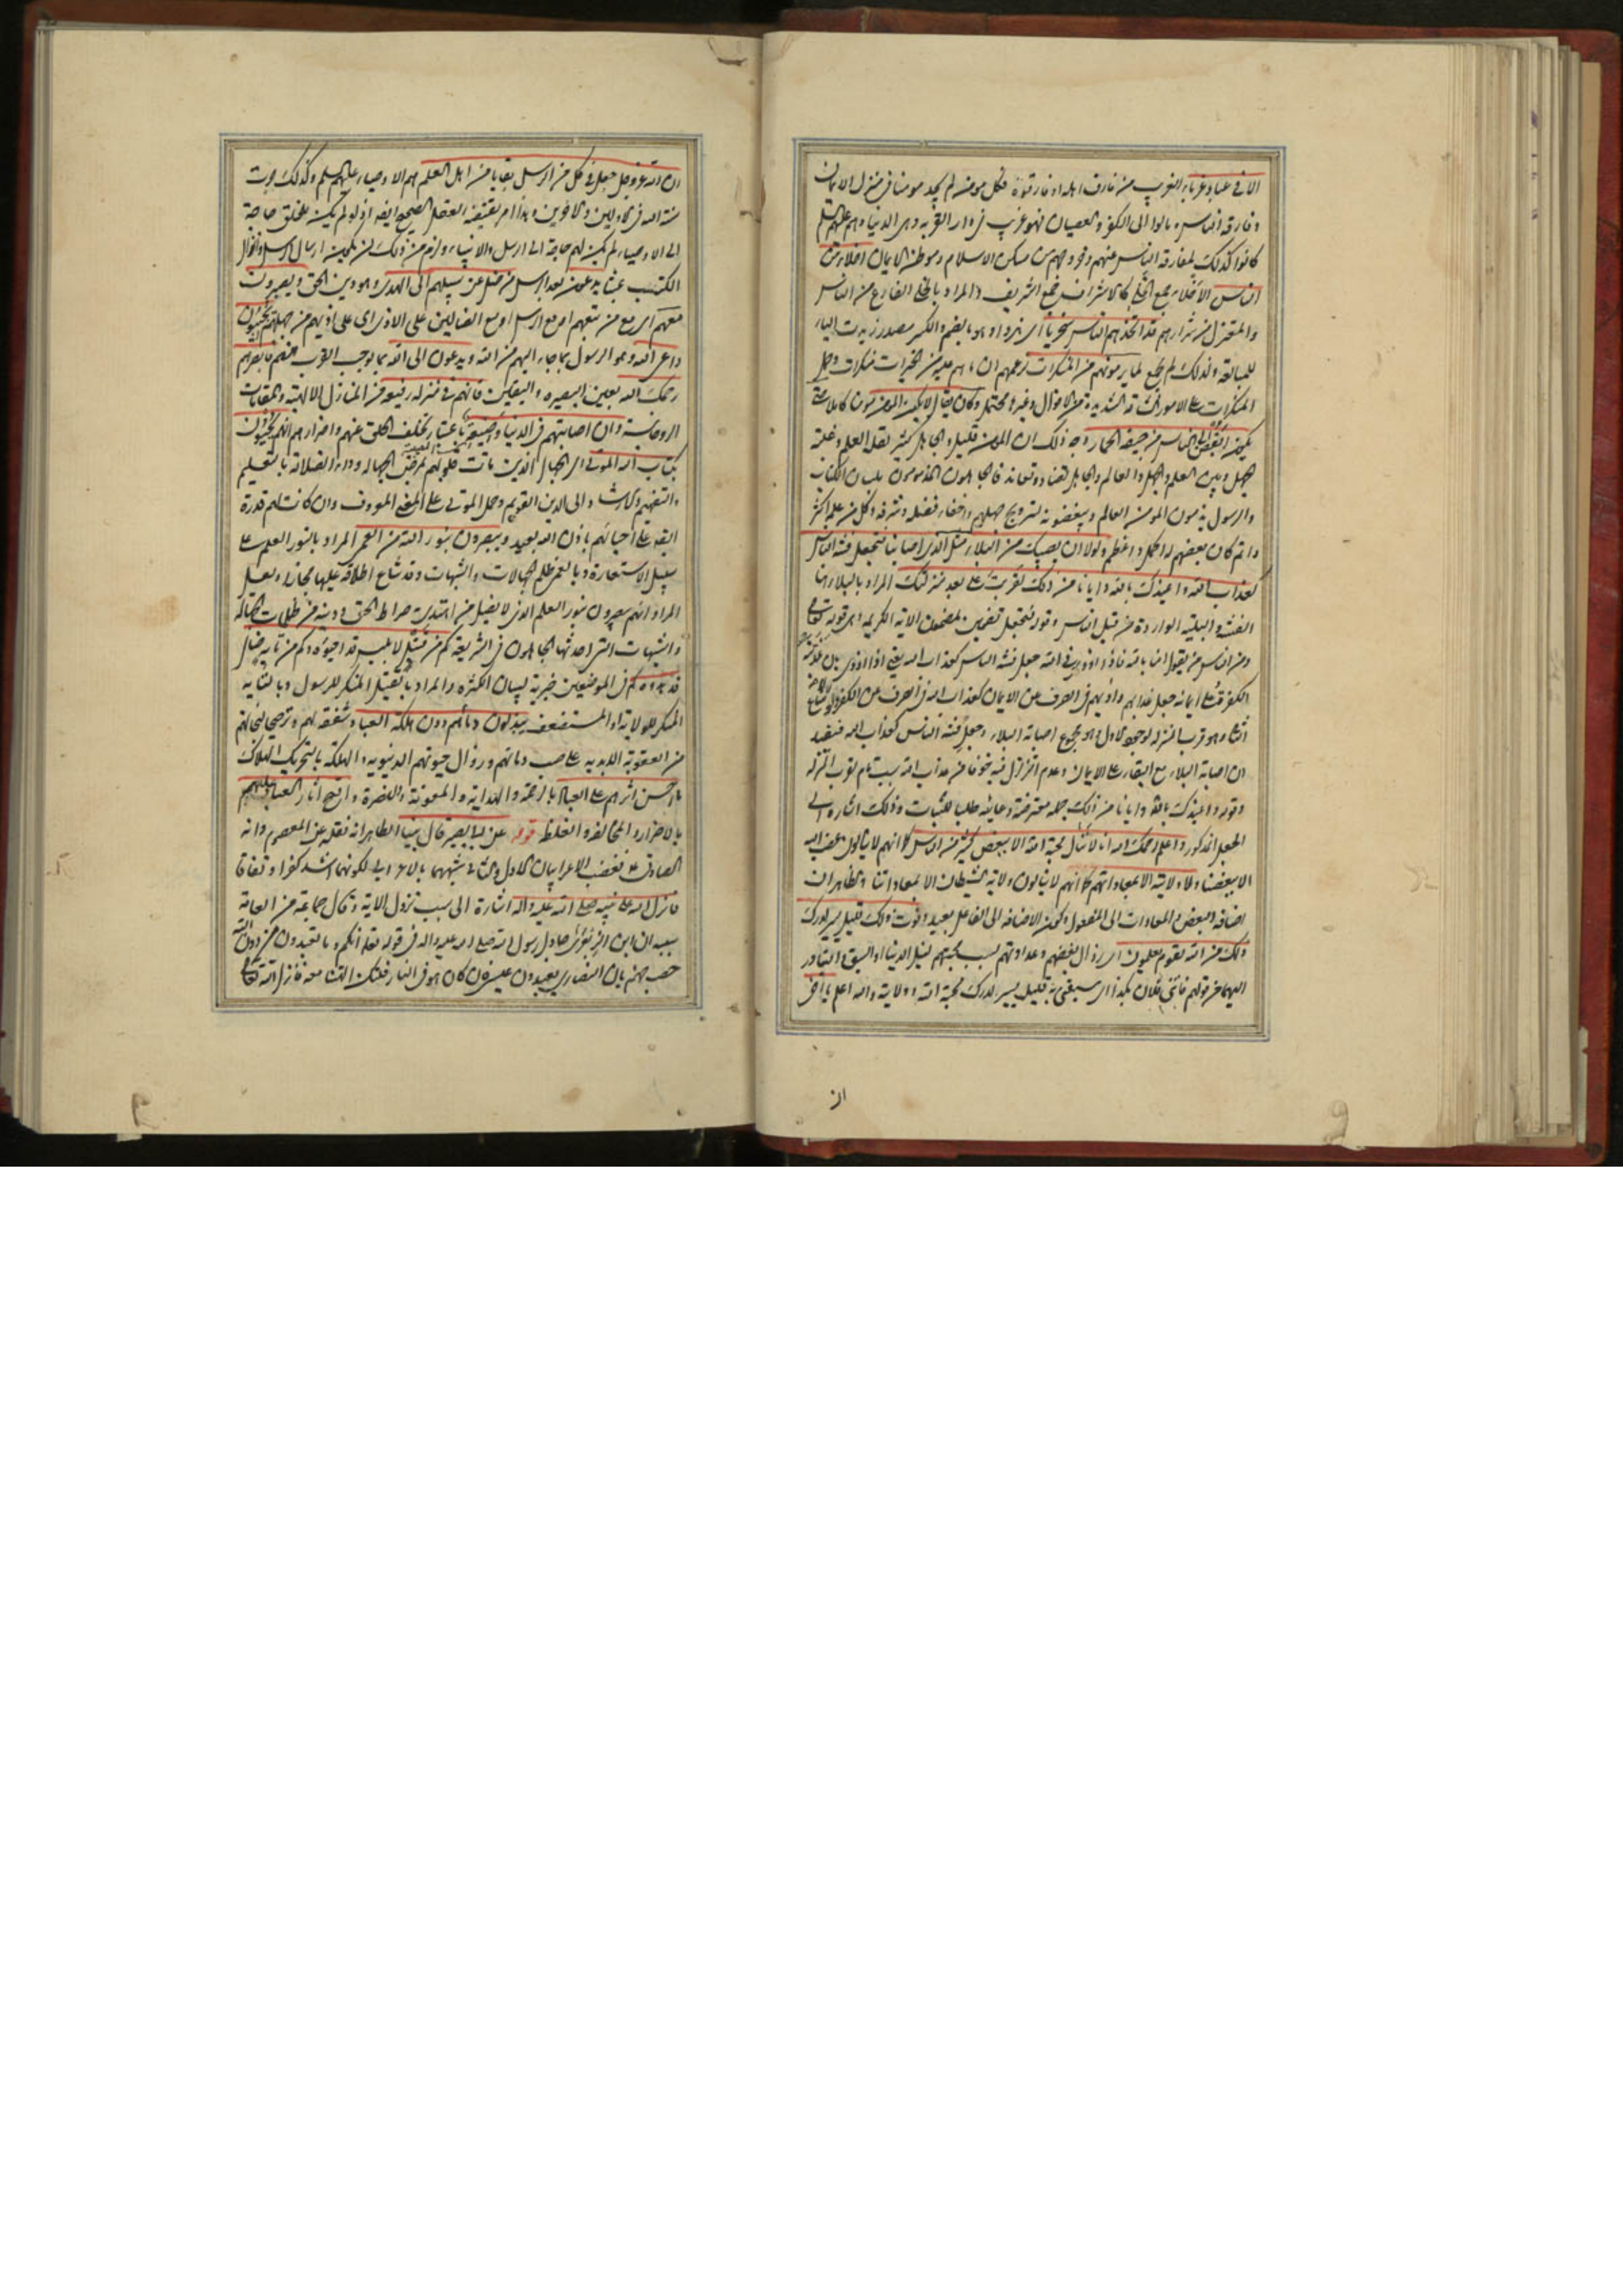 الا في عباد غرباء الغريب من فارق اهله او فارقوه فكل مومن لم يجد مومنا في منزل الايمان
وفارقه الناس ومالوا الى الكفر والعصيان فهو غريب في دار الغربه وهى الدنيا وهم عليهم السلم
كانوا كذلك لمفارقة الناس عنهم وخروجهم من مسكن الاسلام وموطن الايمان اخلاء من
الناس الاخلاء جمع الخلى كالاشراف جمع الشريف والمراد بالخلى الفارغ من الناس
والمعتزل من شرارهم قد اتخذهم الناس سخريا اى هزوا وهو بالضم والكسر مصدر زيدت الياء
للمبالغة ولذلك لم يجمع لما يرمونهم من المنكرات لزعمهم ان ما هم عليه من الخيرات منكرات وحمل
المنكرات على الامور الشاقه الشديدة من الاقوال وغيره محتمل وكان يقال لا يكون المومن مومنا كاملا حتى
يكون ابغض الى الناس من جيفة الحمار وجه ذلك ان المومن قليل والجاهل كثير لقلة العلم وغلبة
الجهل وبين العلم والجهل والعالم والجاهل تضاد وتعاند فالجاهلون المذمومون بلسان الكتاب
والرسول يذمون المومن العالم ويبغضونه لترويج جهلهم واخفاء فضله وشرفه وكل من علمه اكثر
واتم كان بغضهم له اكمل واعظم ولولا ان يصيبك من البلاء مثل الذى اصابنا فتجعل فتنة الناس
كعذاب الله واعيذك بالله وايانا من ذلك لقربت على بعد منزلتك المراد بالبلاء هنا
الفتنه والبليه الواردة من قبل الناس وقوله فتجعل تضمين لمضمون الاية الكريمه وهى قوله تعالى
ومن الناس من يقول امنا بالله فاذا اوذى في الله جعل فتنة الناس كعذاب الله يعنى اذا اوذى بان عذبته
الكفرة على ايمانه جعل عذابهم واذيهم في الصرف عن الايمان كعذاب الله في الصرف عن الكفر
وهو قرب المنزله لوجود الاول وهو مجموع اصابة البلاء وجعل فتنة الناس كعذاب الله فيفيد
ان اصابة البلاء مع البقاء على الايمان وعدم التزلزل فيه خوفا من عذاب الله سبب تام لقرب المنزله
وقوله واعيذك بالله وايانا من ذلك جمله معترضة دعائيه طلبا للثبات وذلك اشارة الى
الجعل المذكور واعلم رحمك الله انا لا ننال محبة الله الا ببغض كثير من الناس كما انهم لا ينالون غضب الله
الا ببغضنا ولا ولايته الا بمعاداتهم كما انهم لا ينالون ولاية الشيطان الا بمعاداتنا والظاهر ان
اضافه البغض والمعادات الى المفعول وكون الاضافه الى الفاعل بعيد وفوت ذلك قليل يسير لدرك
ذلك من الله لقوم يعلمون اى زوال بغضهم وعداوتهم بسبب محبتهم لنيل الدنيا او السبق والتبادر
اليها من قولهم فاتنى فلان بكذا اى سبقنى به قليل يسير لدرك محبة الله وولايته والله اعلم يا اخى
ان
ان الله عز وجل جعل في كل من الرسل بقايا من اهل العلم هم الاوصياء عليهم السلم وكذلك جرت
سنة الله في الاولين والاخرين وهذا امر يقتضيه العقل الصحيح ايضا اذ لو لم يكن للخلق حاجة
الى الاوصياء لم يكن لهم حاجة الى الرسل والانبياء ولزم من ذلك ان يكون ارسال الرسل وانزال
الكتب عبثا يدعون بعد الرسل من ضل عن سبيلهم الى الهدى وهو دين الحق ويصبرون
معهم اى مع من تبعهم او مع الرسل او مع الضالين على الاذى اى على اذيهم من جهلهم يجيبون
داعى الله وهو الرسول بما جاء اليهم من الله ويدعون الى الله بما يوجب القرب منه فابصرهم
رحمك الله بعين البصيره واليقين فانهم في منزله رفيعه من المنازل الالهيه والمقامات
الروحانية وان اصابتهم في الدنيا وضيعة باعتبار تخلف الخلق عنهم واضرارهم انهم يحيون
بكتاب الله الموتى اى الجهال الذين ماتت قلوبهم بمرض الجهاله وداء الضلالة بالتعليم
والتفهيم والارشاد الى الدين القويم وحمل الموتى على المعنى المعروف وان كانت لهم قدرة
ايضا على احيائهم باذن الله بعيد ويبصرون بنور الله من العمى المراد بالنور العلم على
سبيل الاستعارة وبالعمى ظلم الجهالات والشبهات وقد شاع اطلاقه عليها مجازا ولعل
المراد انهم يبصرون بنور العلم الذى لا يضل من اهتدى به صراط الحق ودينه من ظلمات الجهاله
والشبهات التى احدثها الجاهلون في الشريعه كم من قتيل لابليس قد احيوه وكم من تايه ضال
قد هدوه كم في الموضعين خبرية لبيان الكثره والمراد بالقتيل المنكر للرسول وبالتايه
المنكر للولاية او المستضعف يبذلون دمائهم دون هلكة العباد شفقه لهم وترجيحا لنجاتهم
من العقوبة الابديه على صب دمائهم وزوال حيوتهم الدنيويه والهلكة بالتحريك الهلاك
ما احسن اثرهم على العباد بالرحمة والهداية والمعونة والنصرة واقبح اثار العباد عليهم
بالاضرار والمخالفه والغلظ قوله عن ابى بصير قال بينا الظاهر انه نقله عن المعصوم وانه
الصادق ع فغضب الاعرابيان الاول والثانى شبههما بالاعرابى لكونهما اشد كفرا ونفاقا
فانزل الله على نبيه صلى الله عليه واله اشارة الى سبب نزول الاية وقال جماعة من العامة
سببه ان ابن الزبعرى جادل رسول الله صلى الله عليه واله في قوله تعالى انكم وما تعبدون من دون الله
حصب جهنم بان النصارى يعبدون عيسى فان كان هو في النار فلتكن الهتنا معه فانزل الله تعالى